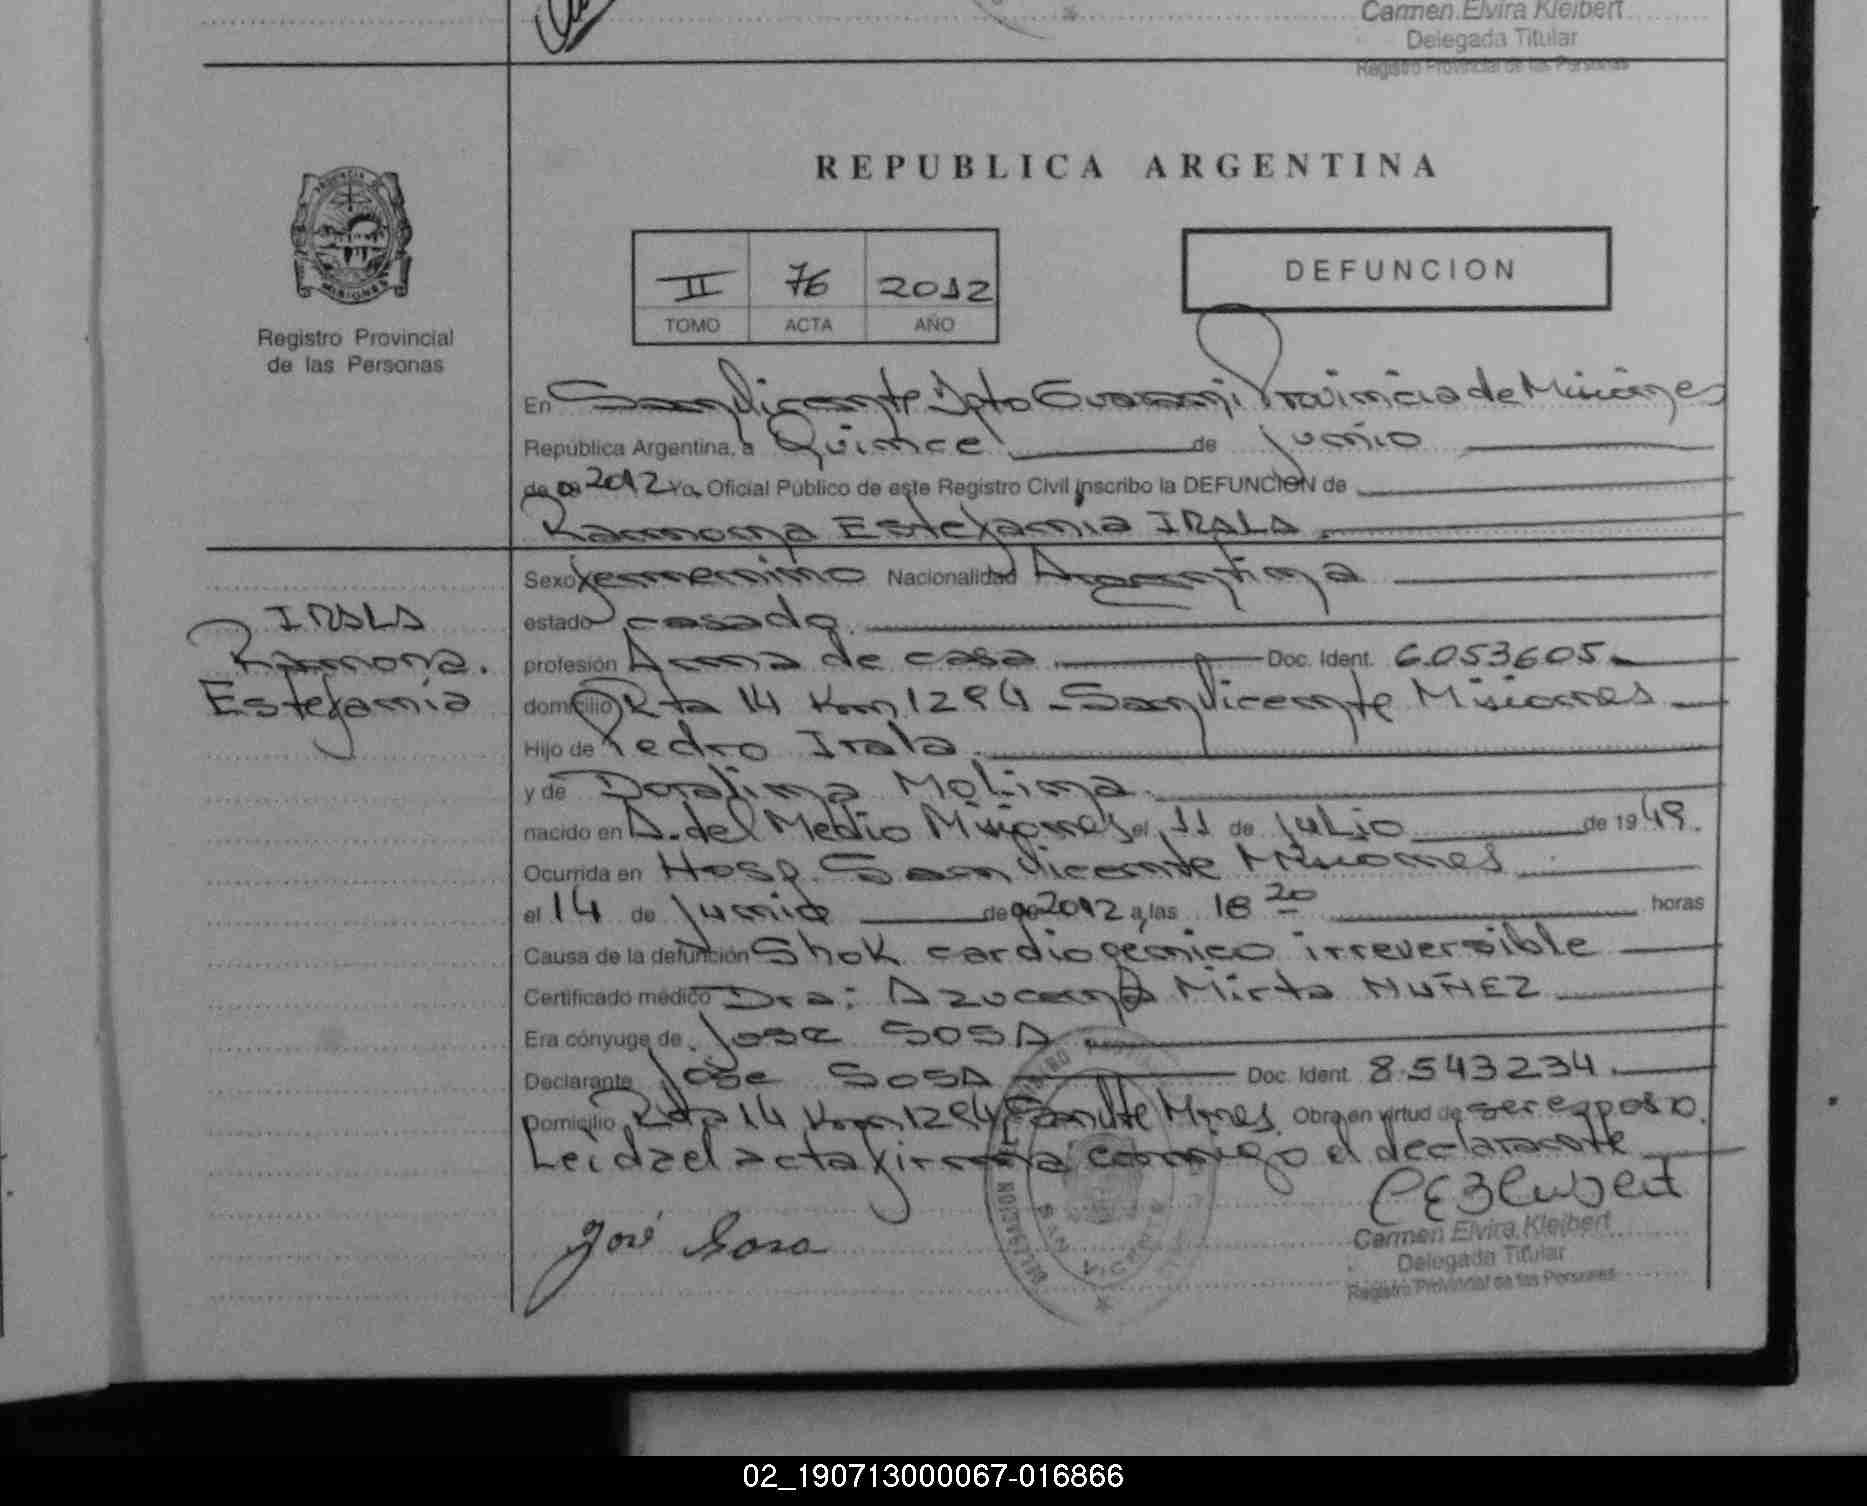 Carmen Elvira Kleibert
Delegada Titular
Registro Provincial de las Personas
PROVINCIA DE
MISIONES
Registro Provincial
de las Personas
REPUBLICA ARGENTINA
II 76 2012
TOMO ACTA AÑO
DEFUNCION
En San Vicente Dpto Guarani Provincia de Misiones
República Argentina, a Quince de junio
de 2012 Yo, Oficial Público de este Registro Civil inscribo la DEFUNCION de
Ramona Estefania IRALA
IRALA
Ramona.
Estefania
Sexo femenino Nacionalidad Argentina
estado casada.
profesión Ama de casa Doc. Ident. 6.053605
domicilio Rta 14 Km 1294 - San Vicente Misiones
Hijo de Pedro Irala
y de Doralina Molina
nacido en A. del Medio Misiones el 11 de julio de 1949.
Ocurrida en Hosp. San Vicente Misiones
el 14 de junio de 2012 a las 18 20 horas
Causa de la defunción Shok cardiogénico irreversible
Certificado médico Dra: Azucena Mirta NUÑEZ
Era cónyuge de José SOSA
Declarante José SOSA Doc. Ident. 8.543234.
Domicilio Rta 14 Km 1294 San Vte Mnes. Obra en virtud de ser esposo.
Leída el acta firma conmigo el declarante
José Sosa
SAN VICENTE
Carmen Elvira Kleibert
Delegada Titular
Registro Provincial de las Personas
02_190713000067-016866